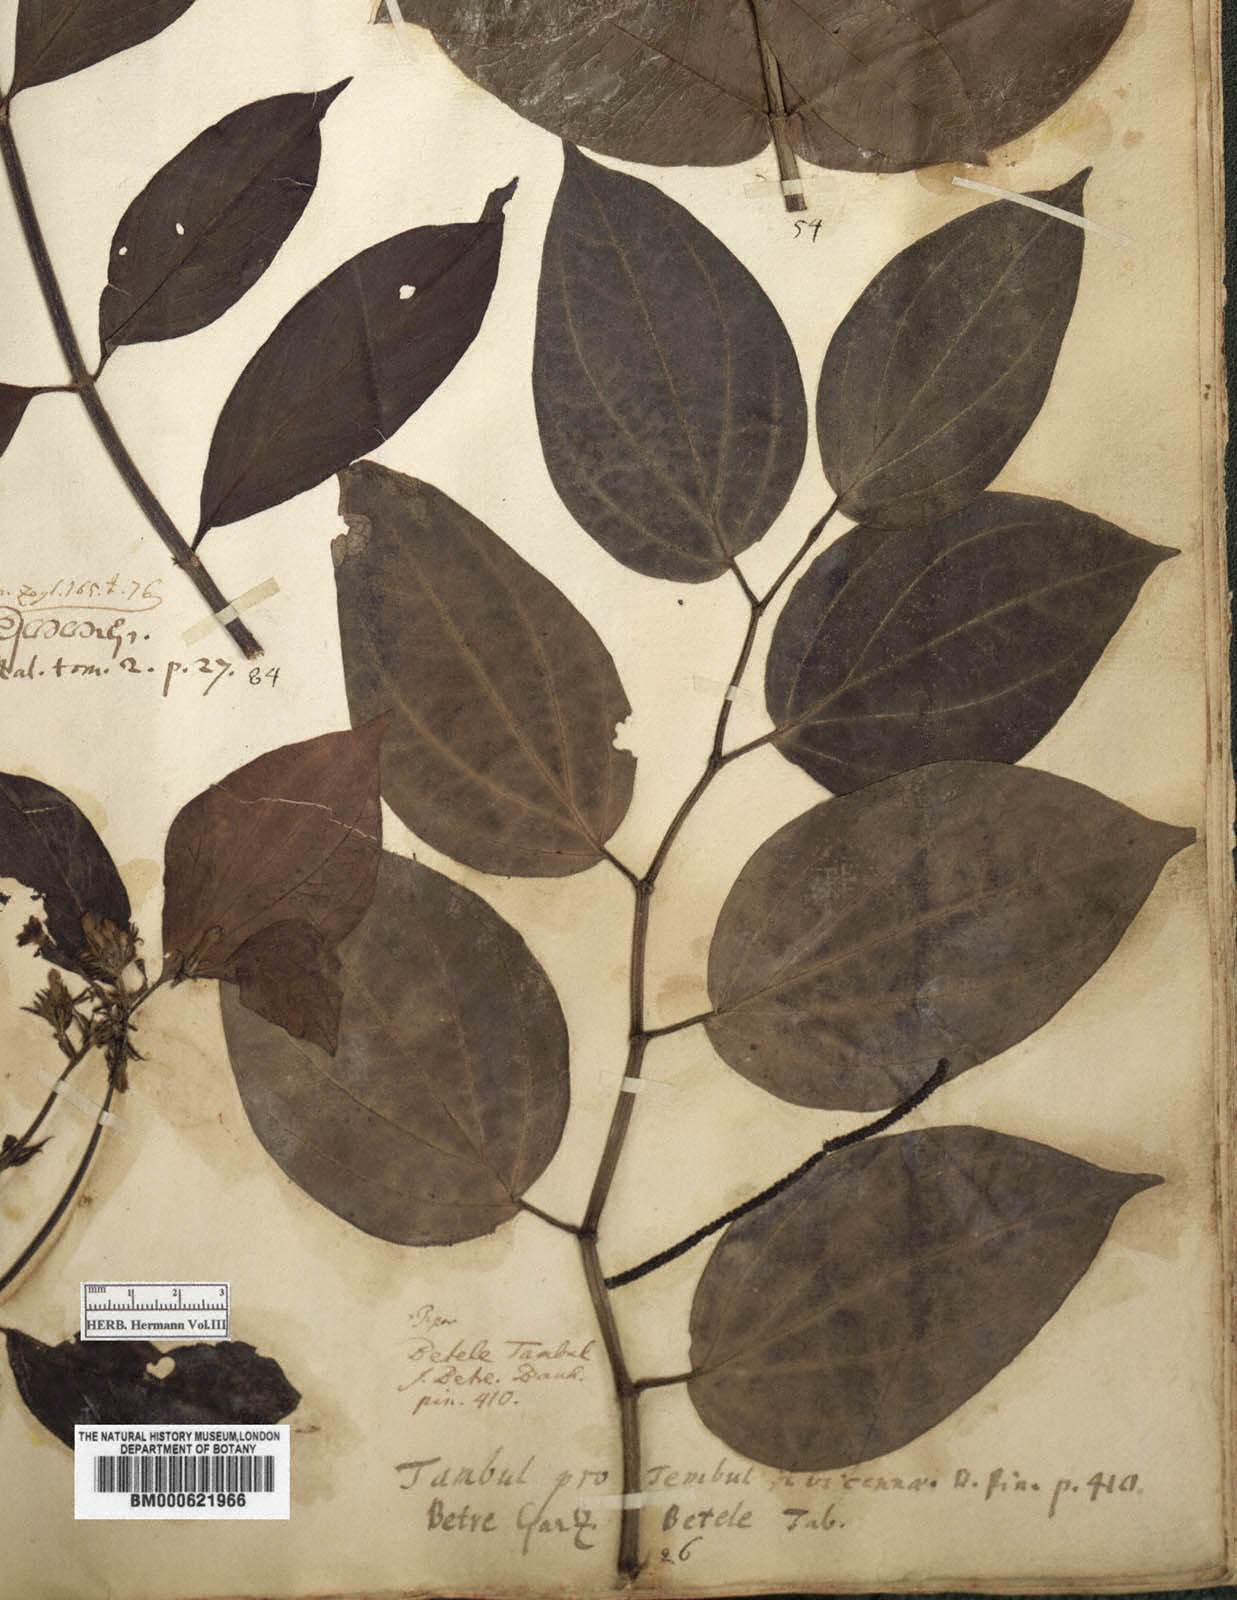 54
Zeyl. 165. t. 76
tom. 2. p. 27. 84
mm 1 2 3
HERB. Hermann Vol.III
Piper
Betele Tambul
s. Betre. Bauh.
pin. 410.
THE NATURAL HISTORY MUSEUM, LONDON
DEPARTMENT OF BOTANY
BM000621966
Tambul pro Tembul Avicennæ. B. pin. p. 410.
Betre Garz. Betele Tab.
26